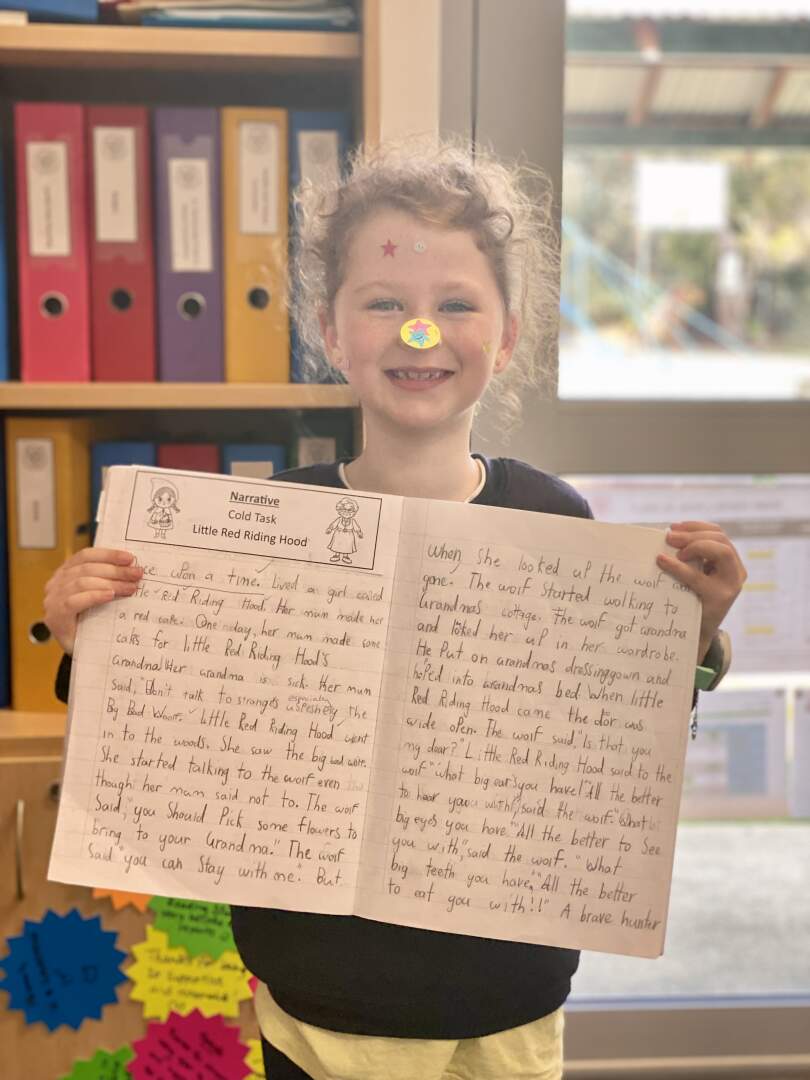 Narrative
Cold Task
Little Red Riding Hood
Once upon a time. Lived a girl called
Red Riding Hood. Her mum made her
a red cake. One day, her mum made some
caks for little Red Riding Hood's
Grandna! Her grandma is sick. Her mum
said, "Don't talk to strangers especially the
Big Bad Woolf." Little Red Riding Hood went
in to the woods. She saw the big bad wolf.
She started talking to the wolf even
though her mam said not to. The wolf
Said, "you Should Pick some flowers to
bring to your Grandma." The wolf
Said "you can Stay with me". But
when she looked up the wolf
gone. The wolf Started walking to
Grandmas cottage. The wolf got Grandma
and loked her up in her wardrobe.
He Put on Grandmas dressinggown and
hoped into Grandmas bed. When little
Red Riding Hood came the dor was
wide open. The wolf said, "Is that you
my dear?" Little Red Riding Hood said to the
wolf "what big ears you have! "All the better
to hear you with," said the wolf. "What
big eyes you have." "All the better to See
you with," said the wolf. "What
big teeth you have." "All the better
to eat you with!!" A brave hunter
Thanks for being
so supportive